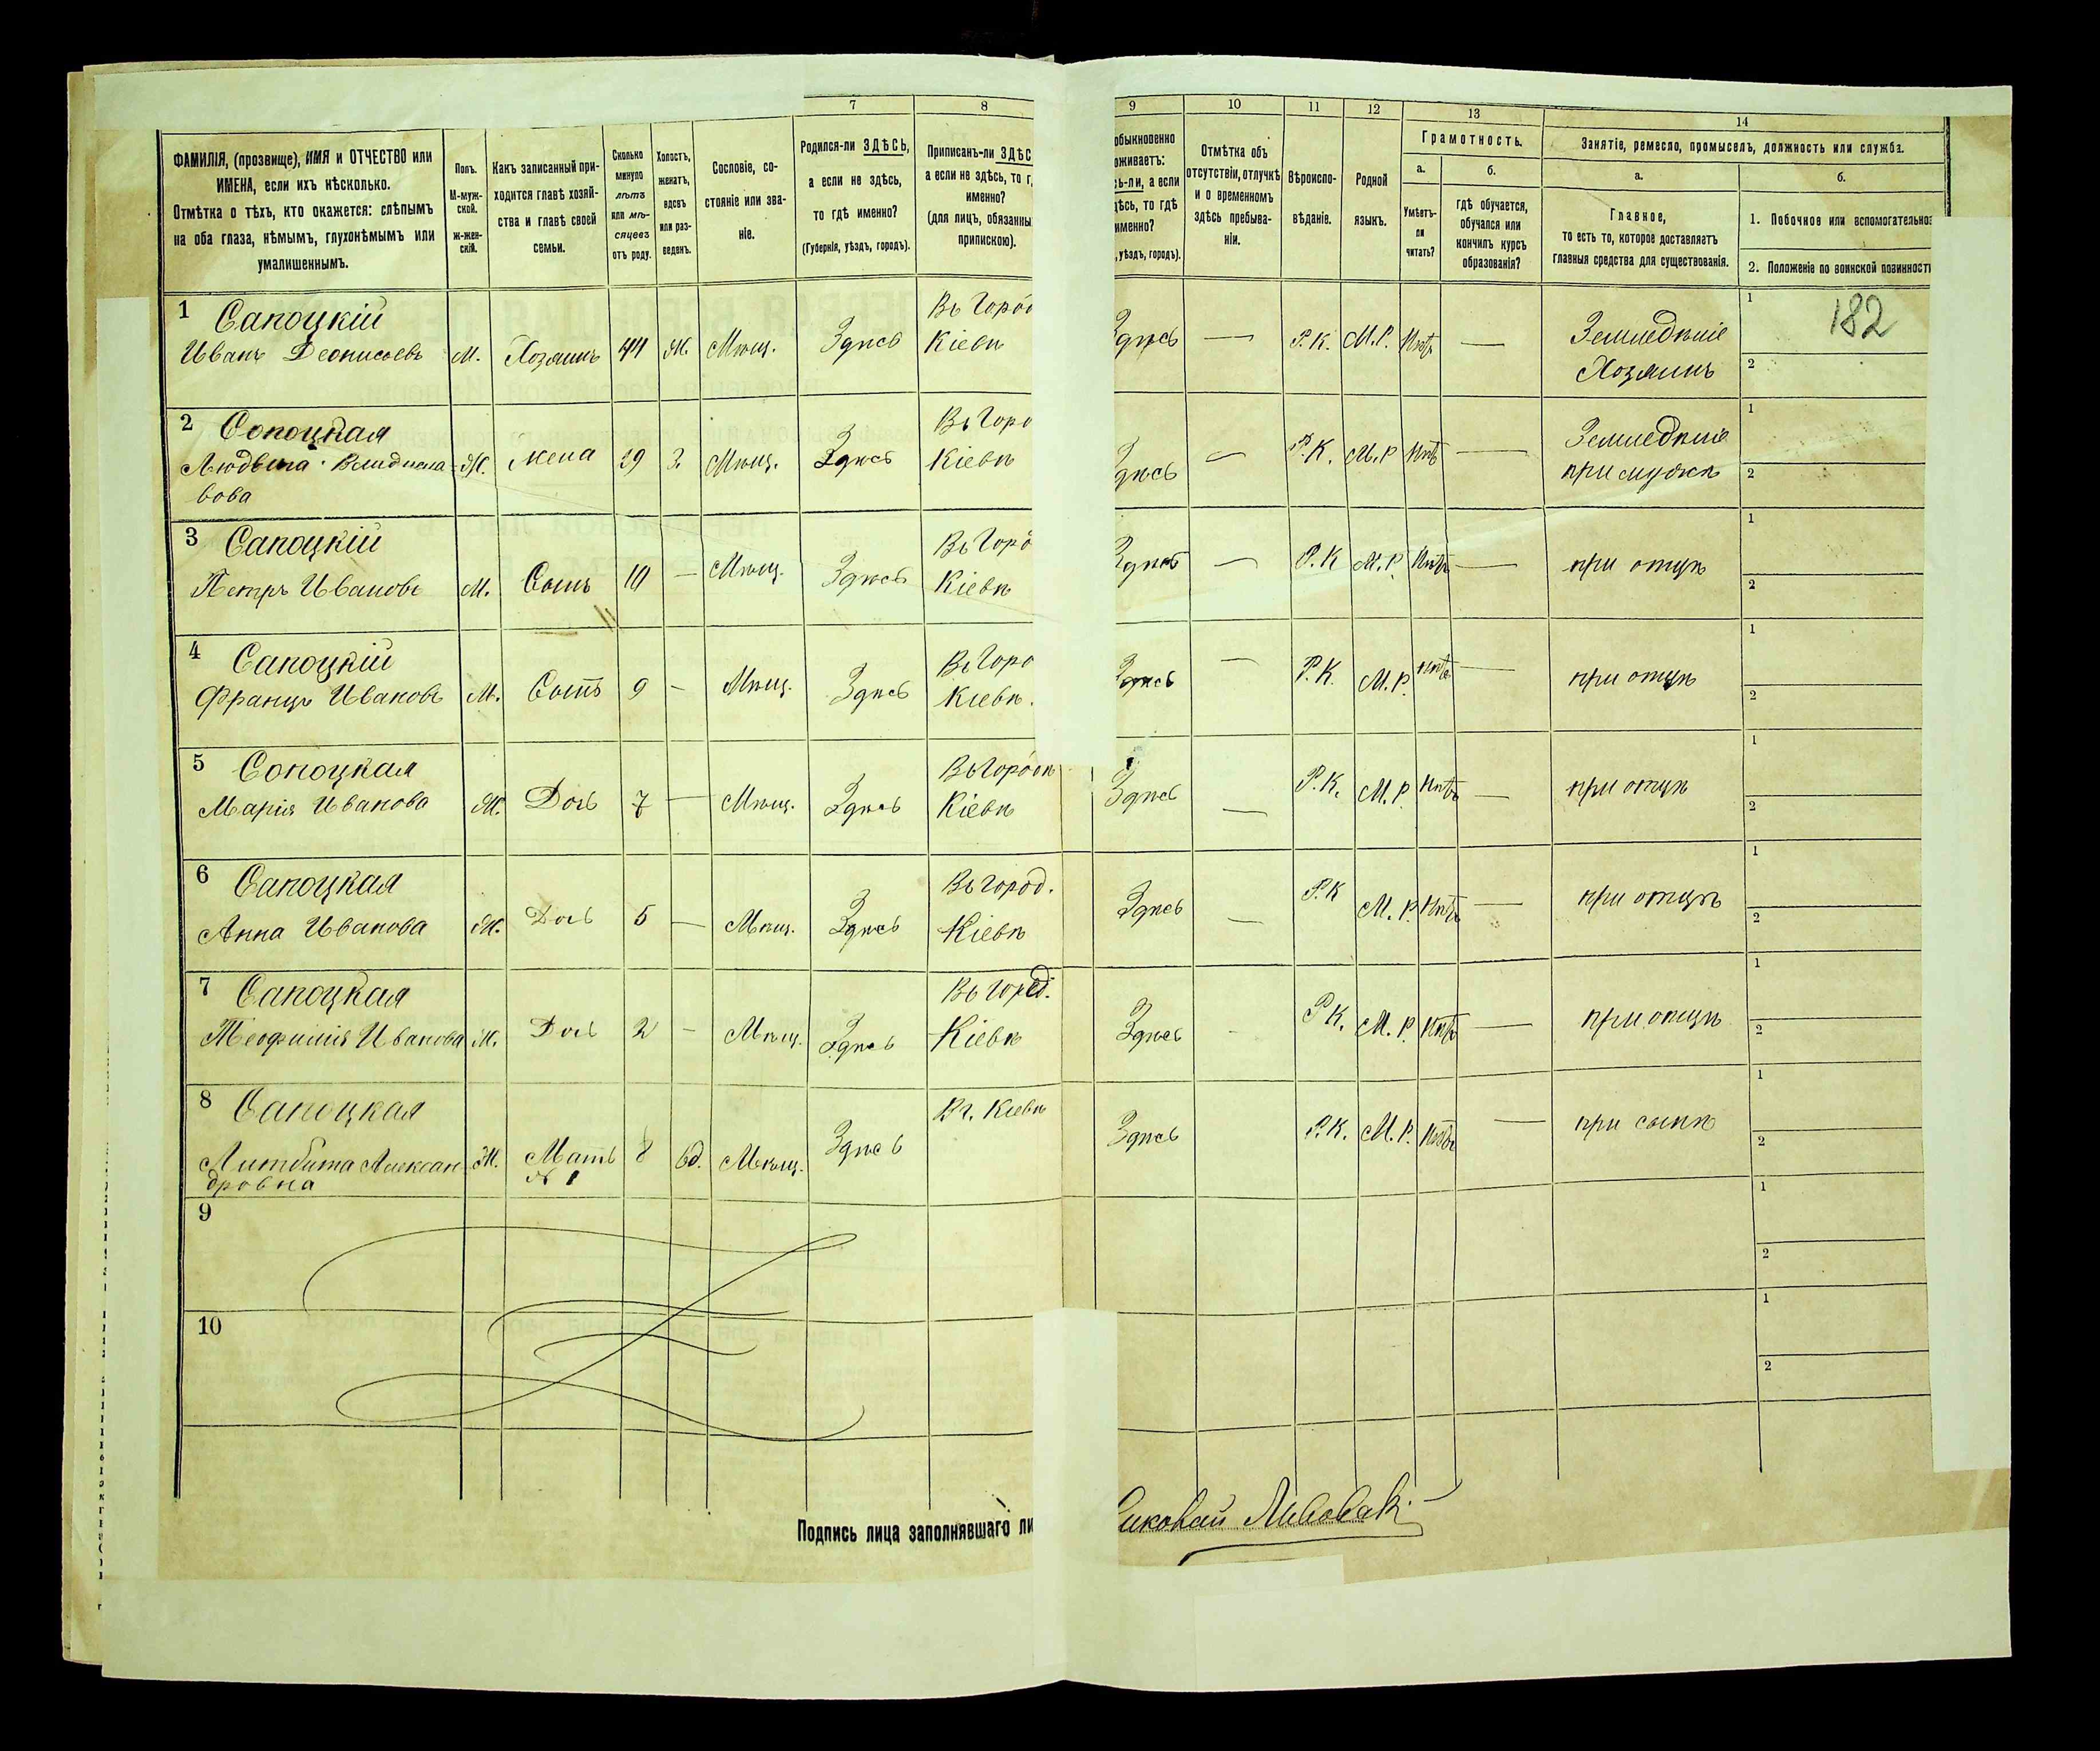 7 8 9 10 11 12 13 14
ФАМИЛІЯ, (прозвище), ИМЯ и ОТЧЕСТВО или
ИМЕНА, если ихъ нѣсколько.
Отмѣтка о тѣхъ, кто окажется: слѣпымъ
на оба глаза, нѣмымъ, глухонѣмымъ или
умалишеннымъ.
Полъ.
М-муж-
ской.
Ж-жен-
скій.
Какъ записанный при-
ходится главѣ хозяй-
ства и главѣ своей
семьи.
Сколько
минуло
лѣтъ
или мѣ-
сяцевъ
отъ роду.
Холостъ,
женатъ,
вдовъ
или раз-
веденъ.
Сословіе, со-
стояніе или зва-
ніе.
Родился-ли ЗДѢСЬ,
а если не здѣсь,
то гдѣ именно?
(Губернія, уѣздъ, городъ).
Приписанъ-ли ЗДѢС
а если не здѣсь, то г
именно?
(для лицъ, обязанны
припискою).
обыкновенно
оживаетъ:
сь-ли, а если
дѣсь, то гдѣ
именно?
, уѣздъ, городъ).
Отмѣтка объ
отсутствіи, отлучкѣ
и о временномъ
здѣсь пребыва-
ніи.
Вѣроиспо-
вѣданіе.
Родной
языкъ.
Грамотность.
а.
Умѣетъ-
ли
читать?
б.
гдѣ обучается,
обучался или
кончилъ курсъ
образованія?
Занятіе, ремесло, промыселъ, должность или служба.
а.
Главное,
то есть то, которое доставляетъ
главныя средства для существованія.
б.
1. Побочное или вспомогательно
2. Положеніе по воинской повинност
1 Сапоцкій Въ Горо 1 182
Иванъ Деонисьевъ М. Хозяинъ 44 Ж. Мѣщ. Здѣсь Кіевѣ Здѣсь — Р.К. М.Р. Нѣтъ — Земледѣліе
Хозяинъ 2
2 Сопоцкая Въ Горо 1
Ж. жена 39 З. Мѣщ. Здѣсь Кіевѣ Здѣсь — Р.К. М.Р Нѣтъ — Земледѣліе
вова при мужѣ 2
3 Сапоцкій Въ Горо 1
Петръ Ивановъ М. Сынъ — Мѣщ. Здѣсь Кіевѣ Здѣсь — Р.К М.Р. Нѣтъ — при отцѣ 2
4 Сапоцкій Въ Горо 1
Францъ Ивановъ М. Сынъ 9 — Мѣщ. Здѣсь Кіевѣ. Здѣсь — Р.К. М.Р. нѣтъ — при отцѣ 2
5 Сопоцкая Въ Городѣ 1
Марія Иванова Ж. Дочь 7 — Мѣщ. Здѣсь Кіевѣ Здѣсь — Р.К. М.Р. Нѣтъ — при отцѣ 2
6 Сапоцкая Въ Город. 1
Анна Иванова Ж. Дочь 5 — Мѣщ. Здѣсь Кіевѣ Здѣсь — Р.К М.Р. Нѣтъ — при отцѣ 2
7 Сапоцкая Въ Город. 1
Теофилія Иванова Ж. Дочь 2 — Мѣщ. Здѣсь Кіевѣ Здѣсь - Р.К. М.Р. Нѣтъ — при отцѣ 2
8 Сапоцкая Въ г. Кіевѣ 1
Алексан Ж. Мать вд. Мѣщ. Здѣсь Здѣсь Р.К. М.Р. Нѣтъ — при сынѣ 2
дровна № 1
9 1
2
10 1
2
Подпись лица заполнявшаго ли